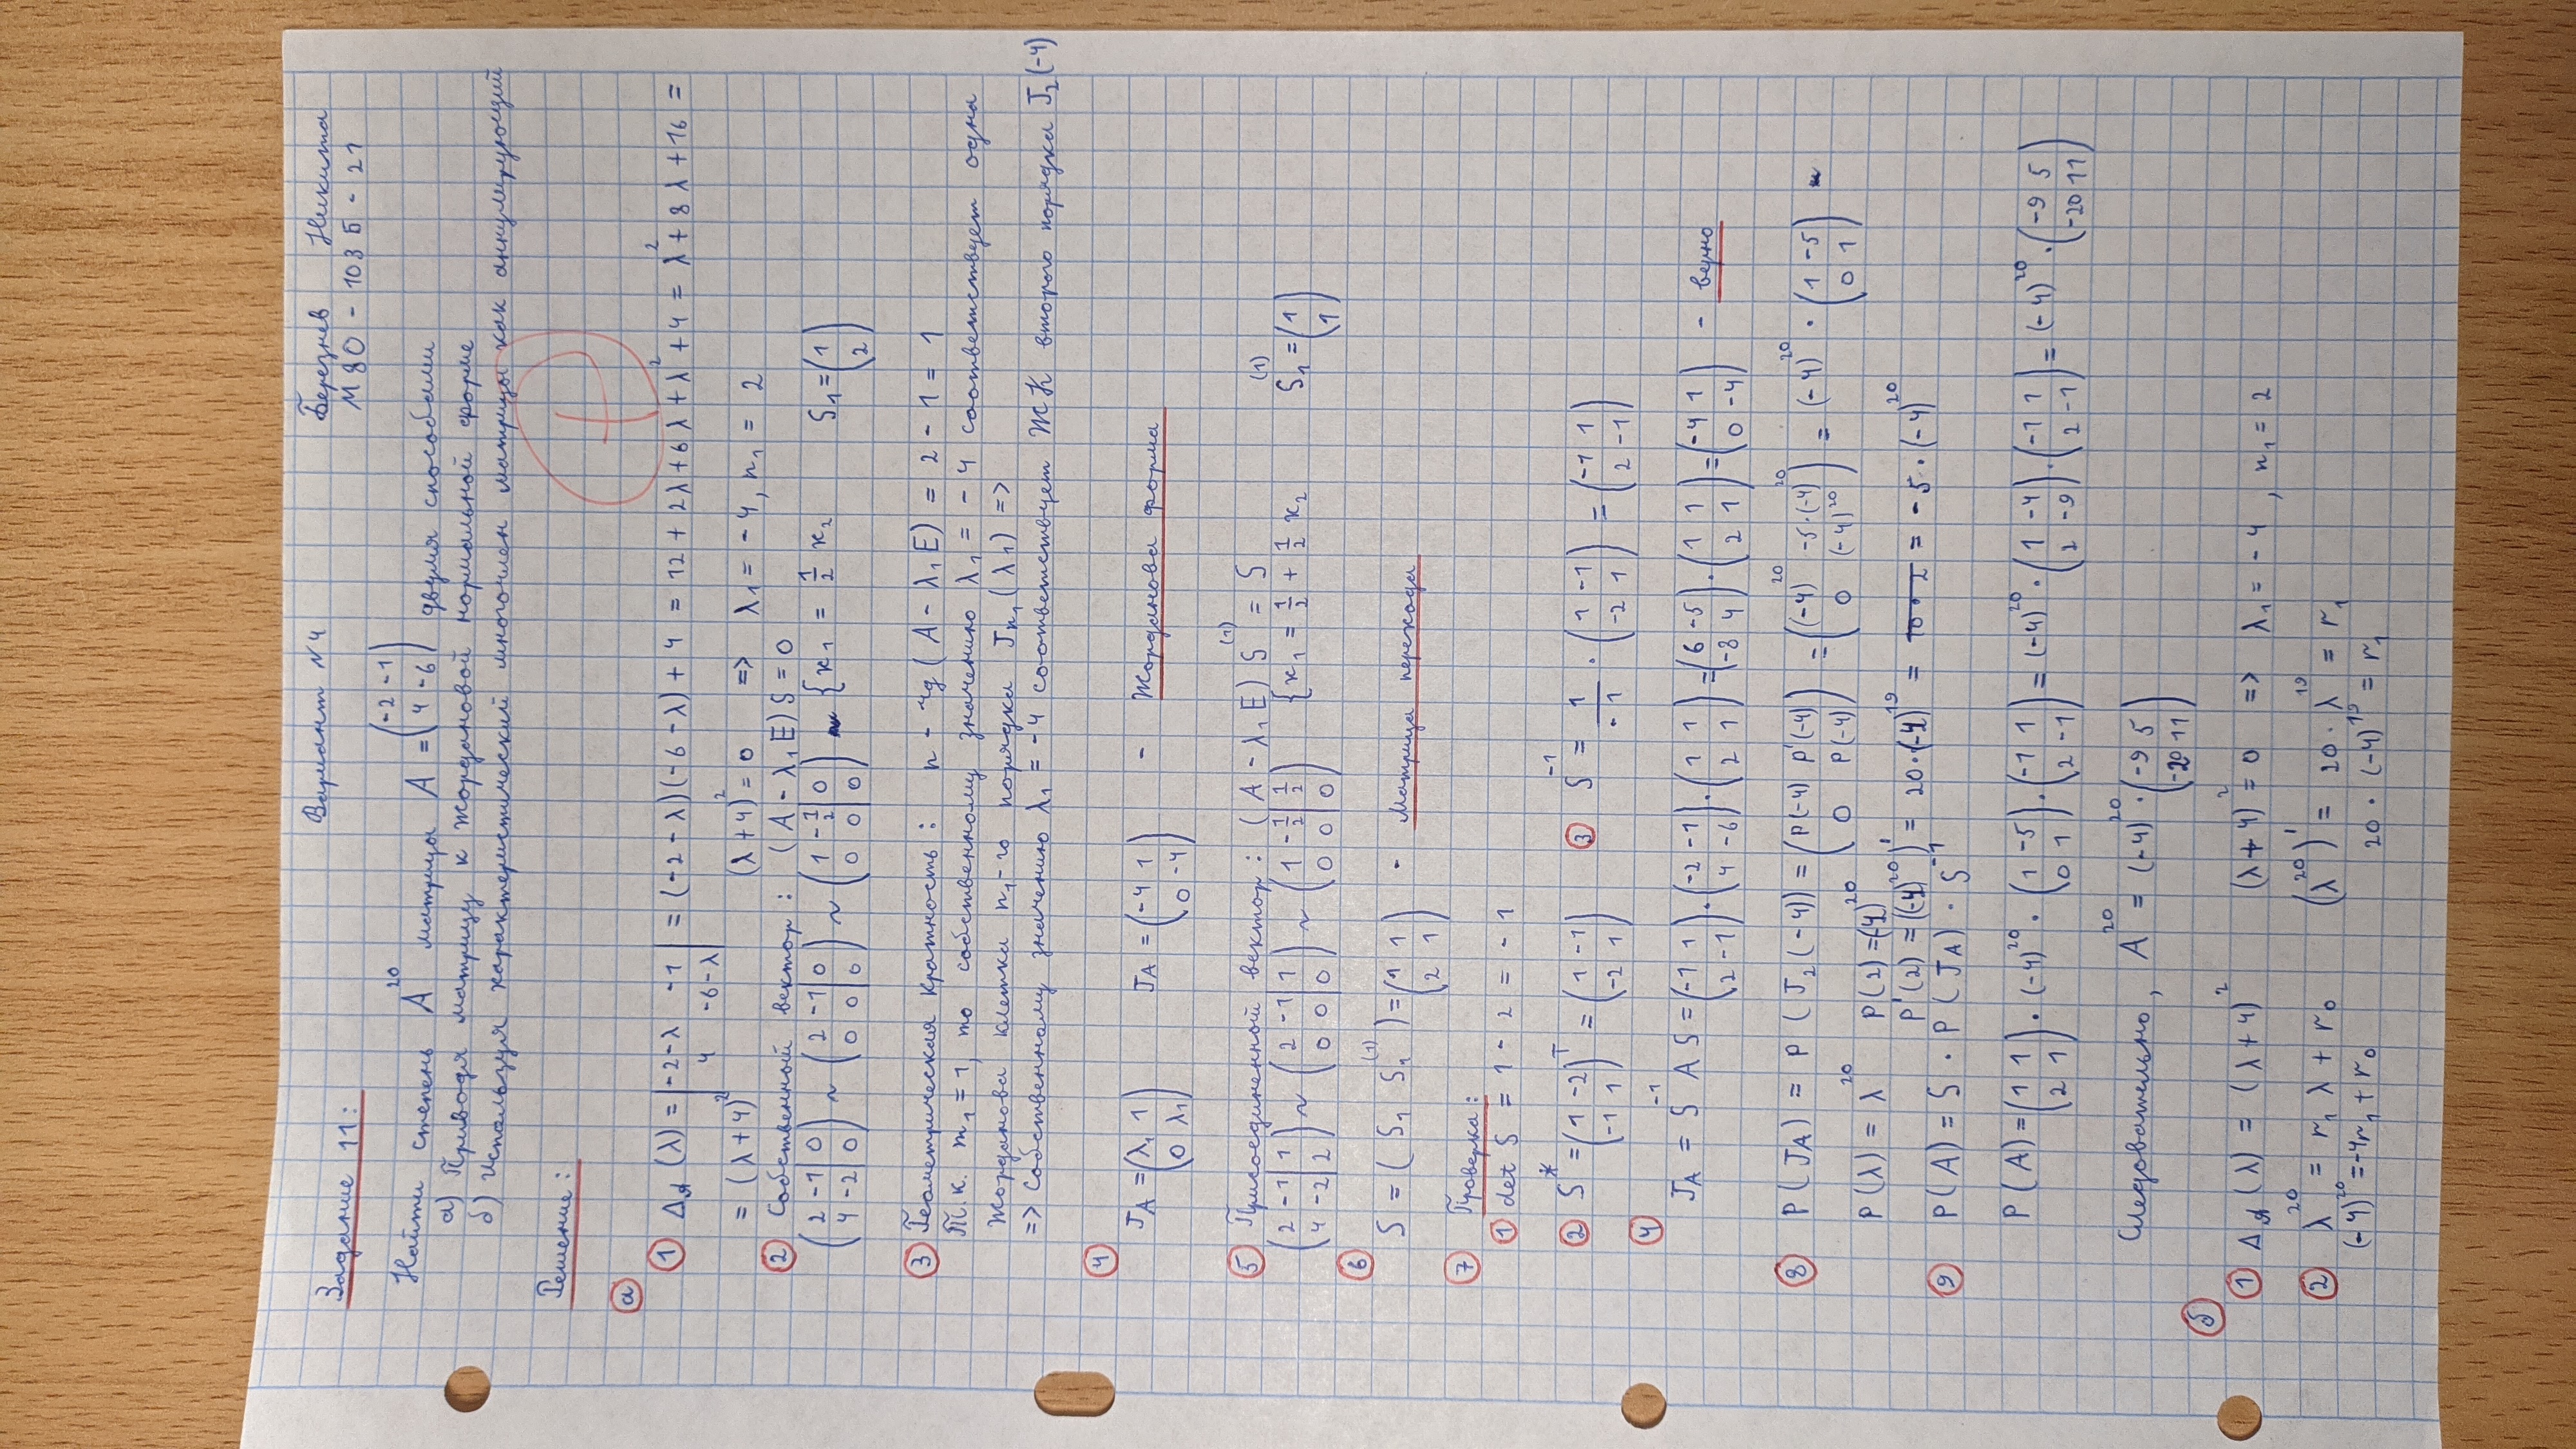 Вариант №4
Березнев Никита
Задание 11:
М8О - 103Б - 21
Найти степень A^20 матрицы A = (-2 -1; 4 -6) двумя способами
а) Приводя матрицу к жордановой нормальной форме
б) Используя характеристический многочлен матрицы как аннулирующий
Решение:
+
а
1 Δ_A(λ) = |-2-λ -1; 4 -6-λ| = (-2-λ)(-6-λ) + 4 = 12 + 2λ + 6λ + λ^2 + 4 = λ^2 + 8λ + 16 =
= (λ+4)^2 (λ+4)^2 = 0 => λ_1 = -4, n_1 = 2
2 Собственный вектор: (A - λ_1E)S = 0
(2 -1|0; 4 -2|0) ~ (2 -1|0; 0 0|0) ~ (1 -1/2|0; 0 0|0) ~ {x_1 = 1/2 x_2 S_1 = (1; 2)
3 Геометрическая кратность: n - rg(A - λ_1E) = 2 - 1 = 1
Т.к. m_1 = 1, то собственному значению λ_1 = -4 соответствует одна
Жорданова клетка n_1-го порядка J_n_1(λ_1) =>
=> Собственному значению λ_1 = -4 соответствует ЖК второго порядка J_2(-4)
4
J_A = (λ_1 1; 0 λ_1) J_A = (-4 1; 0 -4) - Жорданова форма
5 Присоединенный вектор: (A - λ_1E)S^(1) = S
(2 -1|1; 4 -2|2) ~ (2 -1|1; 0 0|0) ~ (1 -1/2|1/2; 0 0|0) {x_1 = 1/2 + 1/2 x_2 S_1^(1) = (1; 1)
6
S = (S_1 S_1^(1)) = (1 1; 2 1) - Матрица перехода
7 Проверка:
1 det S = 1 - 2 = -1
2 S^* = (1 -2; -1 1)^T = (1 -1; -2 1) 3 S^-1 = 1/-1 · (1 -1; -2 1) = (-1 1; 2 -1)
4
J_A = S^-1 A S = (-1 1; 2 -1) · (-2 -1; 4 -6) · (1 1; 2 1) = (6 -5; -8 4) · (1 1; 2 1) = (-4 1; 0 -4) - верно
8 P(J_A) = P(J_2(-4)) = (P(-4) P'(-4); 0 P(-4)) = ((-4)^20 -5·(-4)^20; 0 (-4)^20) = (-4)^20 · (1 -5; 0 1)
P(λ) = λ^20 P(2) = (-4)^20
P'(2) = ((-4)^20)' = 20·(-4)^19 = 10·2 = -5·(-4)^20
9 P(A) = S · P(J_A) · S^-1
P(A) = (1 1; 2 1) · (-4)^20 · (1 -5; 0 1) · (-1 1; 2 -1) = (-4)^20 · (1 -4; 2 -9) · (-1 1; 2 -1) = (-4)^20 · (-9 5; -20 11)
Следовательно, A^20 = (-4)^20 · (-9 5; -20 11)
б
1 Δ_A(λ) = (λ+4)^2 (λ+4)^2 = 0 => λ_1 = -4, n_1 = 2
2 λ^20 = r_1 λ + r_0 (λ^20)' = 20·λ^19 = r_1
(-4)^20 = -4r_1 + r_0 20·(-4)^19 = r_1